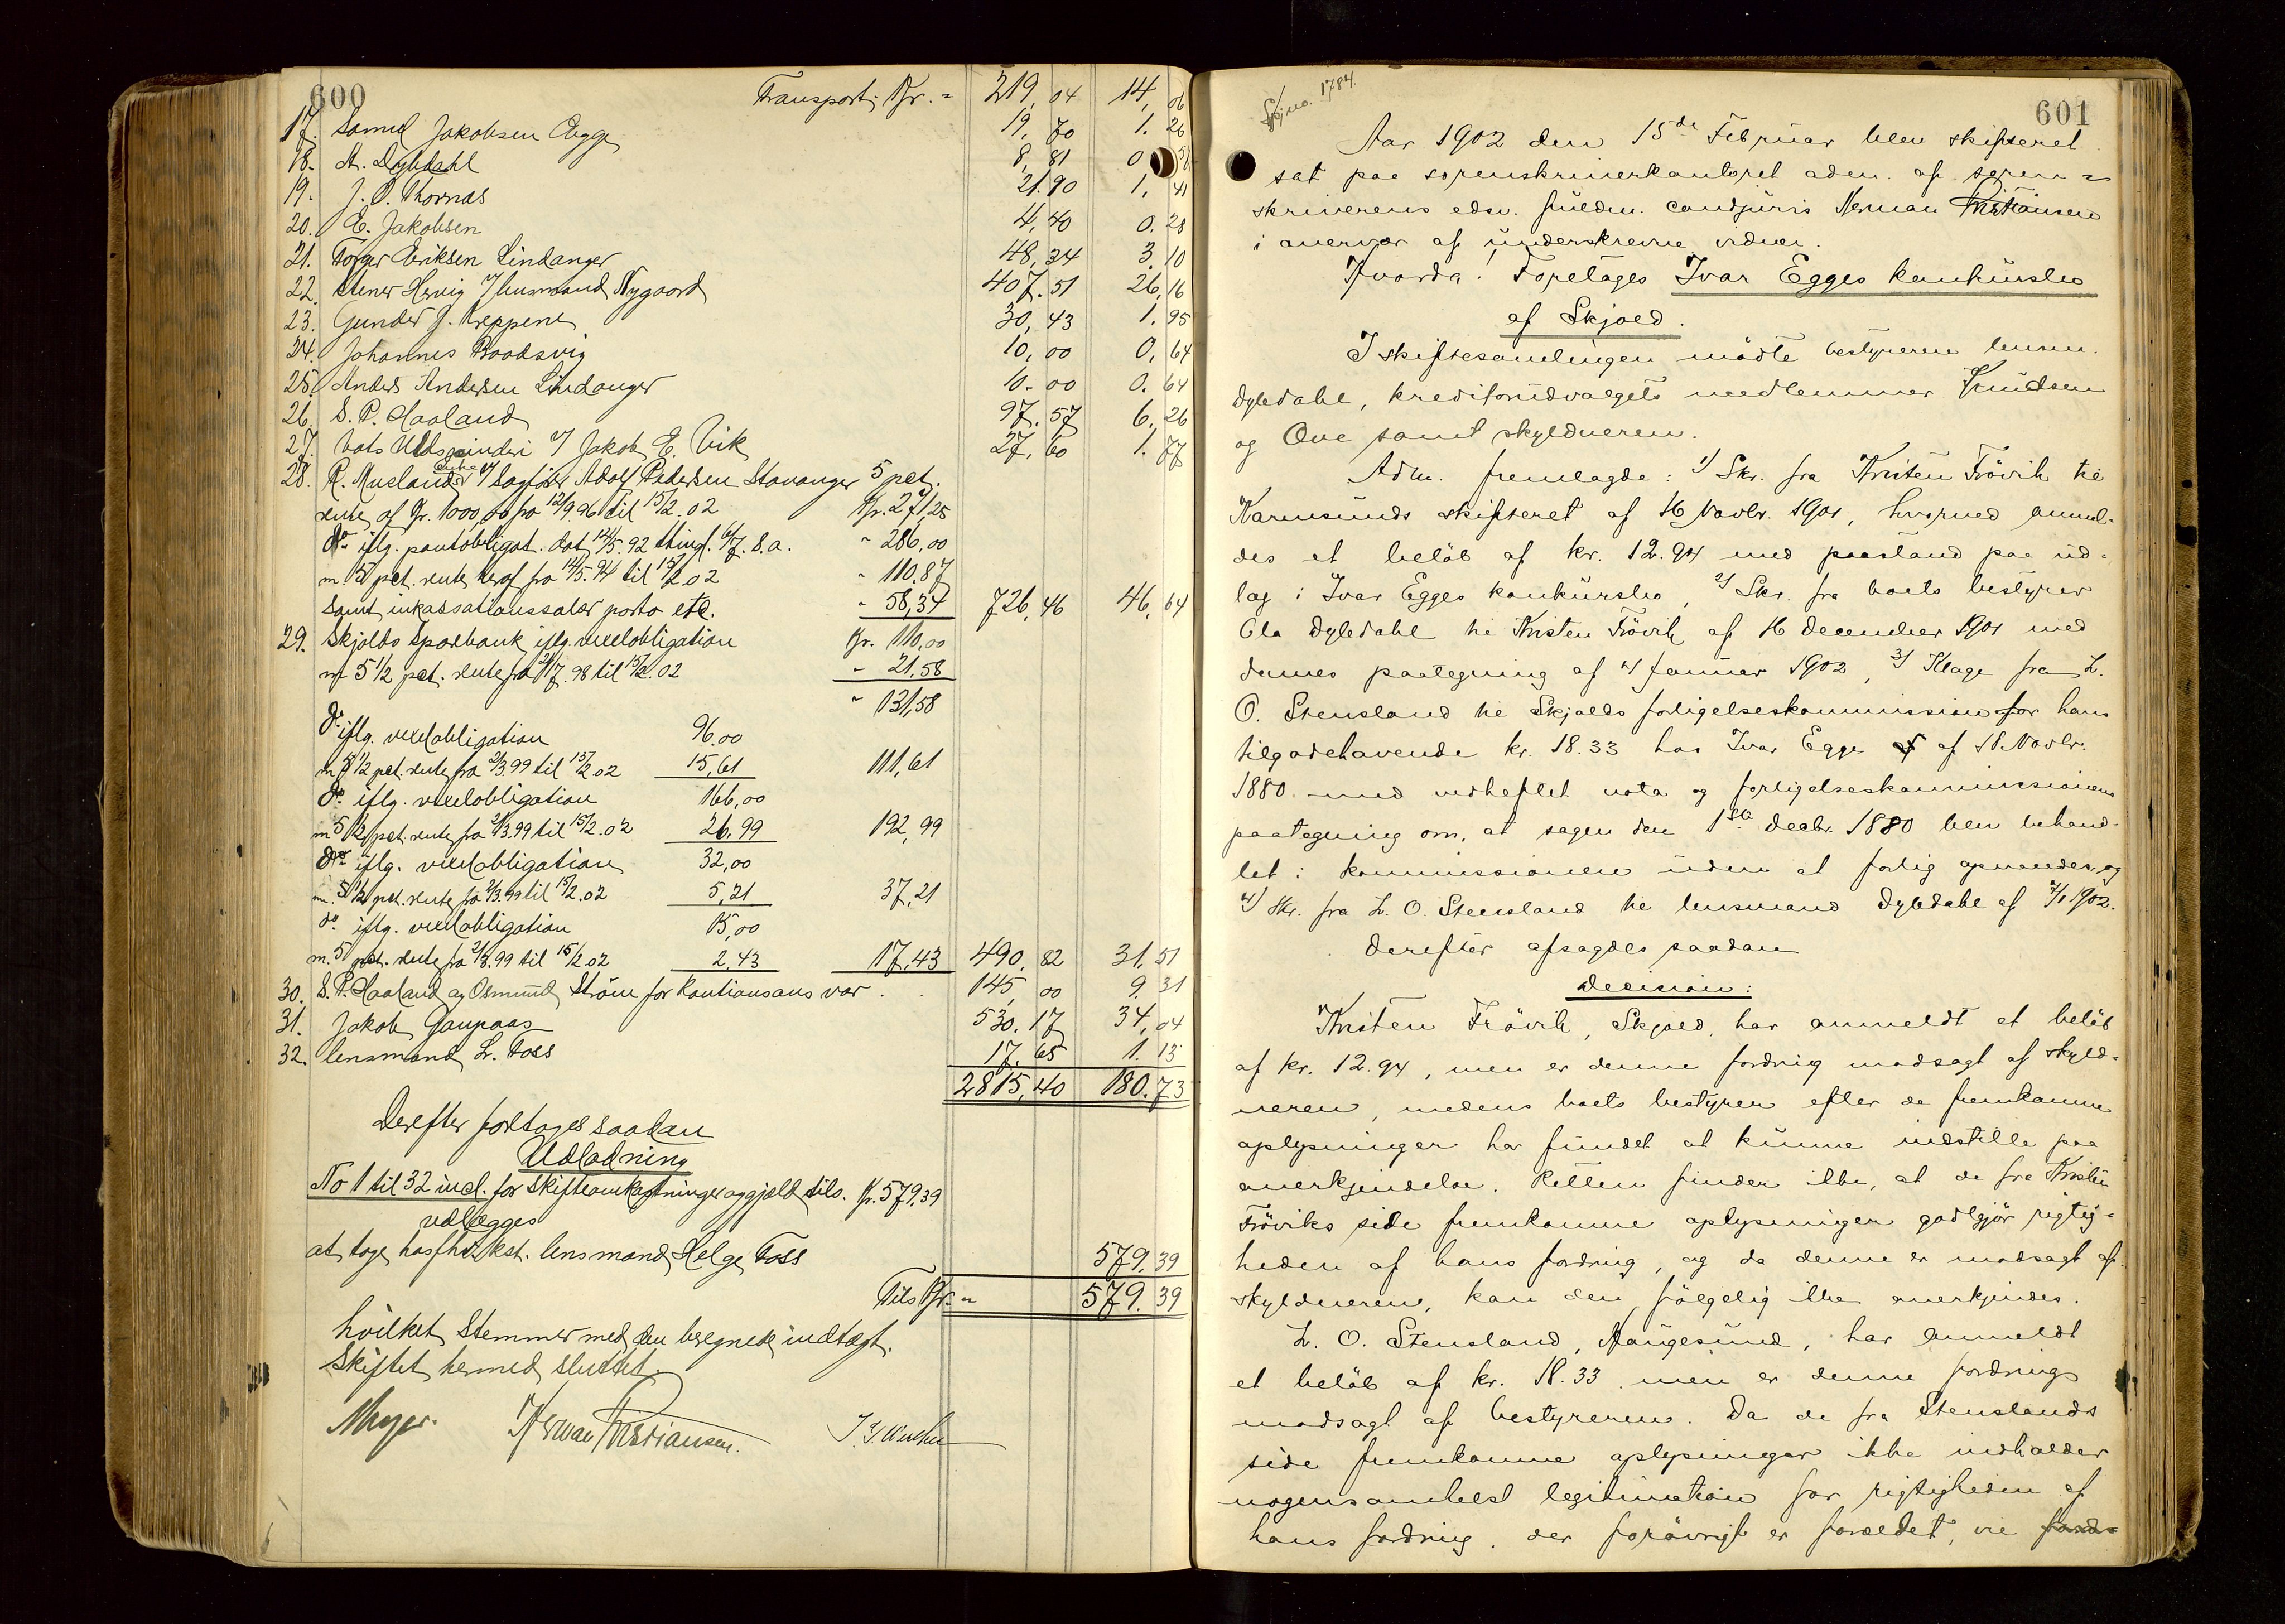 600
Transport Kr. = 219,04 14,06
17. Samuel Jakobsen Egge 19,70 1.26
18. A. Dybdahl 8,81 0
19. J. O. Thornæs 21.90 1,41
20. E. Jakobsen 4,40 0.28
21. Torger Eriksen Lindanger 48,34 3.10
22. Stener Hervig v/ lensmand Nygaard 407.51 26,16
23. Gunder J. Kreppene 30,43 1.95
24. Johannes Baadsvig 10,00 0,64
25. Anders Andersen Lindanger 10.00 0.64
26. S. P. Haaland 97.57 6.26
27. Vats Uldspinderi v/ Jakob E. Vik 27,60 1.77
28. R. Muslands enke v/ Sagfører Adolf Pedersen Stavanger 5 pct.
rente af Kr. 1000,00 fra 12/9.96 til 15/2.02 Kr. 271,25
do iflg. pantobligat. dat. 14/5.92 thingl. 6/7. s.a. " 286,00
m. 5 pct. rente heraf fra 14/5.94 til 15/2 02 " 110.87
samt inkassationssalær porto etc. " 58,34 726,46 46,64
29. Skjolds Sparebank iflg. vexelobligation Kr. 110,00
m 5 1/2 pct. rente fra 21/7.98 til 15/2.02 " 21,58
" 131,58
do iflg. vexelobligation 96.00
m 5 1/2 pct. rente fra 2/3.99 til 15/2 02 15,61 111,61
do iflg. vexelobligation 166,00
m 5 1/2 pct. rente fra 2/3.99 til 15/2.02 26,99 192,99
do iflg. vexelobligation 32,00
m. 5 1/2 pct. rente fra 2/3.99 til 15/2.02 5,21 37,21
do iflg. vexelobligation 15,00
m. 5 pct. rente fra 2/8.99 til 15/2 02 2.43 17,43 490,82 31,51
30. S. P. Haaland og Osmund Strøm for Kautionsansvar 145,00 9.31
31. Jakob Gaupaas 530.17 34,04
32. lensmand L. Foss 17.65 1.13
2815,40 180.73
Derefter foretoges saadan
Udlodning
No 1 til 32 incl. for skifteomkostninger og gjæld tils. Kr. 579,39
udlægges
at tage hos fhv. kst. lensmand Helge Foss 579.39
Tils Kr. = 579.39
hvilket stemmer med den beregnede indtægt.
Skiftet hermed sluttet.
Meyer. Herman Kristiansen.
601
Skj. no. 1784.
Aar 1902 den 15de Februar blev skifteret
sat paa sorenskriverkontoret adm. af soren=
skriverens edsv. fuldm. cand juris Herman Kristiansen
i overvær af underskrevne vidner.
Hvorda: Foretages Ivar Egges konkursbo
af Skjold.
I skiftesamlingen mødte bestyreren lensm.
Dybdahl, kreditorudvalgets medlemmer Knudsen
og Ove samt skyldneren.
Adm. fremlagde: 1) Skr. fra Kristen Frövik til
Karmsunds skifteret af 16 Novbr. 1901, hvorved anmel-
des et beløb af kr. 12.94 med paastand paa ud-
læg i Ivar Egges konkursbo, 2) Skr. fra boets bestyrer
Ola Dybdahl til Kristen Frövik af 16 december 1901 med
dennes paategning af 4 Januar 1902, 3) Klage fra L.
O. Stensland til Skjolds forligelseskommission for hans
tilgodehavende kr. 18.33 hos Ivar Egge af 18. Novbr.
1880 med vedheftet nota og forligelseskommissionens
paategning om, at sagen den 1ste decbr. 1880 blev behand-
let i kommissionen uden at forlig opnaades, og
4) skr. fra L. O. Stensland til lensmand Dybdahl af 4/1 1902.
Derefter afsagdes saadan
decision:
Kristen Frövik, Skjold, har anmeldt et beløb
af kr. 12.94, men er denne fordring modsagt af skyld-
neren, medens boets bestyrer efter de fremkomne
oplysninger har fundet at kunne indstille paa
anerkjendelse. Retten finder ikke, at de fra Kristen
Fröviks side fremkomne oplysninger godtgjør rigtig-
heden af hans fordring, og da denne er modsagt af
skyldneren, kan den følgelig ikke anerkjendes.
L. O. Stensland, Haugesund, har anmeldt
et beløb af kr. 18.33 men er denne fordring
modsagt af bestyreren. Da de fra Stenslands
side fremkomne oplysninger ikke indholder
nogensomhelst legitimation for rigtigheden af
hans fordring, der forøvrigt er forældet, vil